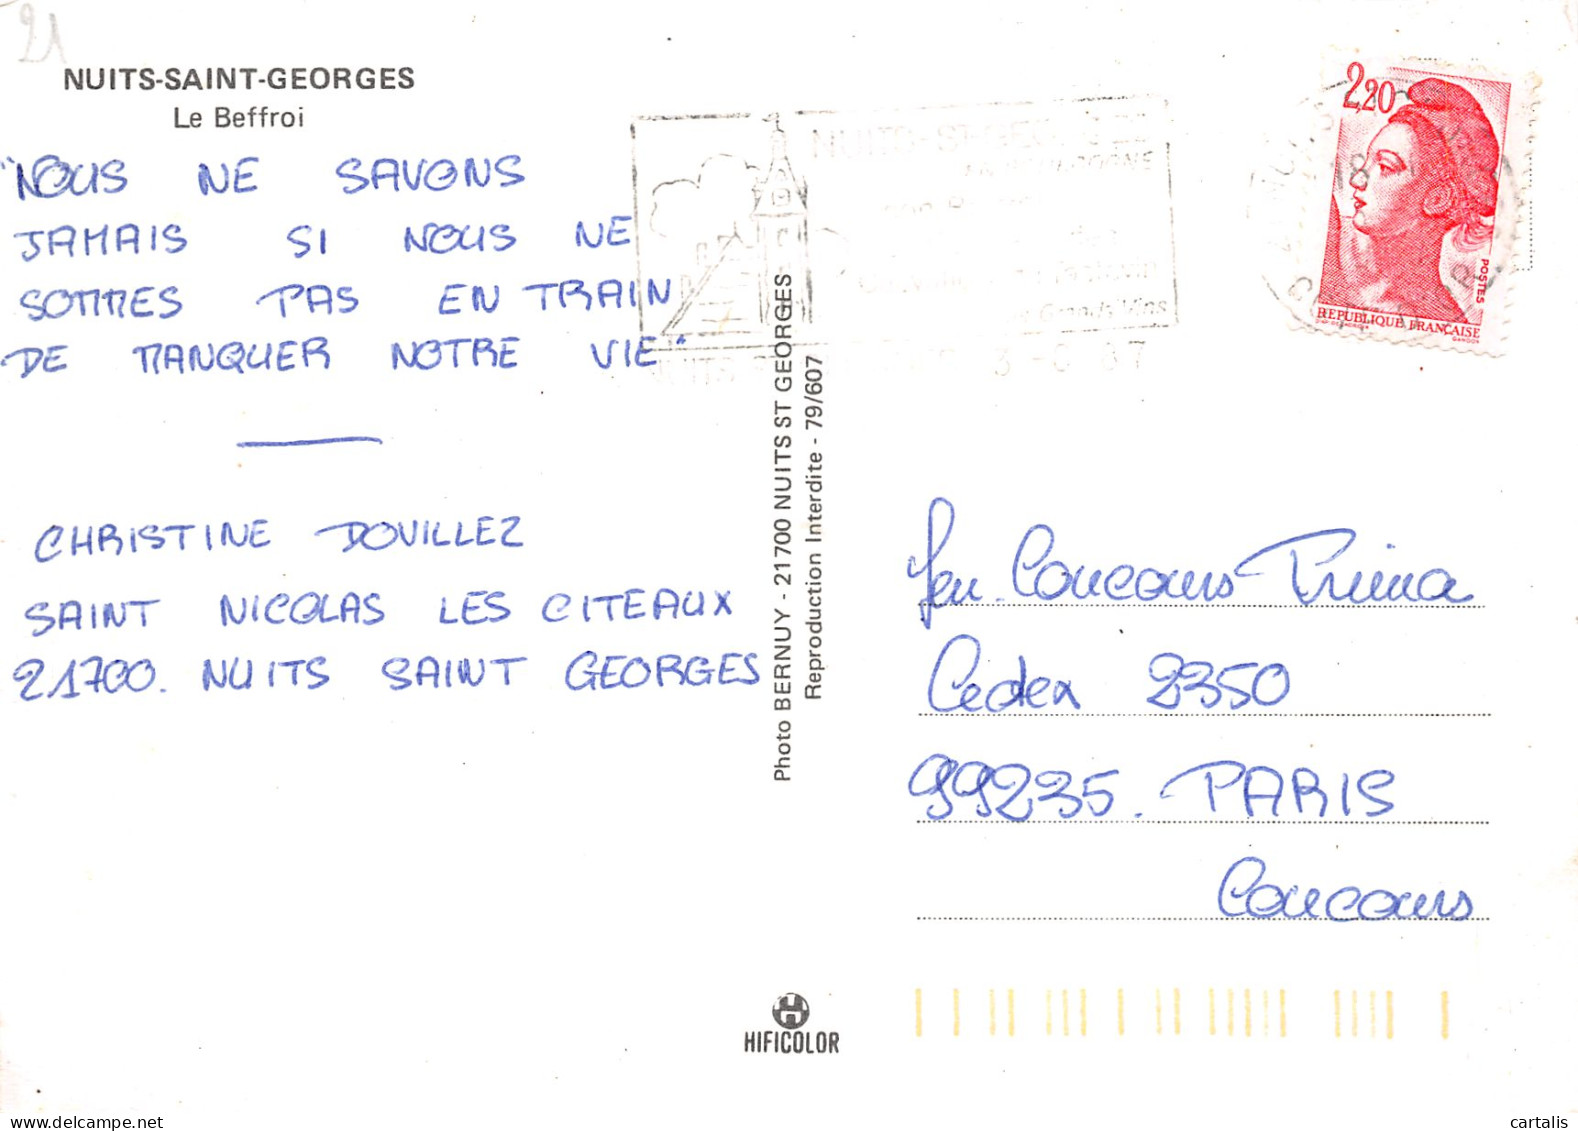 21
NUITS-SAINT-GEORGES
Le Beffroi
"NOUS NE SAVONS
JAMAIS SI NOUS NE
SOMMES PAS EN TRAIN
DE MANQUER NOTRE VIE"
CHRISTINE DOVILLEZ
SAINT NICOLAS LES CITEAUX
21700. NUITS SAINT GEORGES
Photo BERNUY - 21700 NUITS ST GEORGES
Reproduction Interdite - 79/607
NUITS-ST-GEORGES
EN BOURGOGNE
Grands Vins
2,20
POSTES
REPUBLIQUE FRANÇAISE
GANDON
Jeu. Concours Prima
Cedex 2350
99235. PARIS
Concours
HIFICOLOR
cartalis